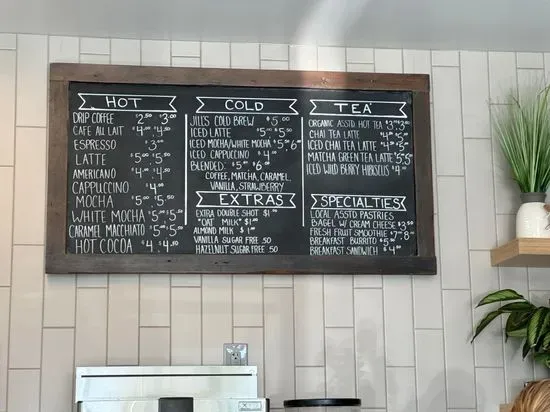 HOT
DRIP COFFEE $2.50 $3.00
CAFE AU LAIT $4.00 $4.50
ESPRESSO $3.00
LATTE $5.00 $5.50
AMERICANO $4.00 $4.50
CAPPUCCINO $4.00
MOCHA $5.00 $5.50
WHITE MOCHA $5.00 $5.50
CARAMEL MACCHIATO $5.00 $5.50
HOT COCOA $4.00 $4.50
COLD
JILL'S COLD BREW $5.00
ICED LATTE $5.00 $5.50
ICED MOCHA/WHITE MOCHA $5.50 $6.00
ICED CAPPUCCINO $4.00
BLENDED: $5.00 $6.00
COFFEE, MATCHA, CARAMEL,
VANILLA, STRAWBERRY
EXTRAS
EXTRA DOUBLE SHOT $1.00
"OAT" MILK $1.00
ALMOND MILK $1.00
VANILLA SUGAR FREE .50
HAZELNUT SUGAR FREE .50
TEA
ORGANIC ASSTD HOT TEA
CHAI TEA LATTE
ICED CHAI TEA LATTE
MATCHA GREEN TEA LATTE
ICED WILD BERRY HIBISCUS
SPECIALTIES
LOCAL ASSTD PASTRIES
BAGEL W/ CREAM CHEESE $3.50
FRESH FRUIT SMOOTHIE
BREAKFAST BURRITO
BREAKFAST SANDWICH